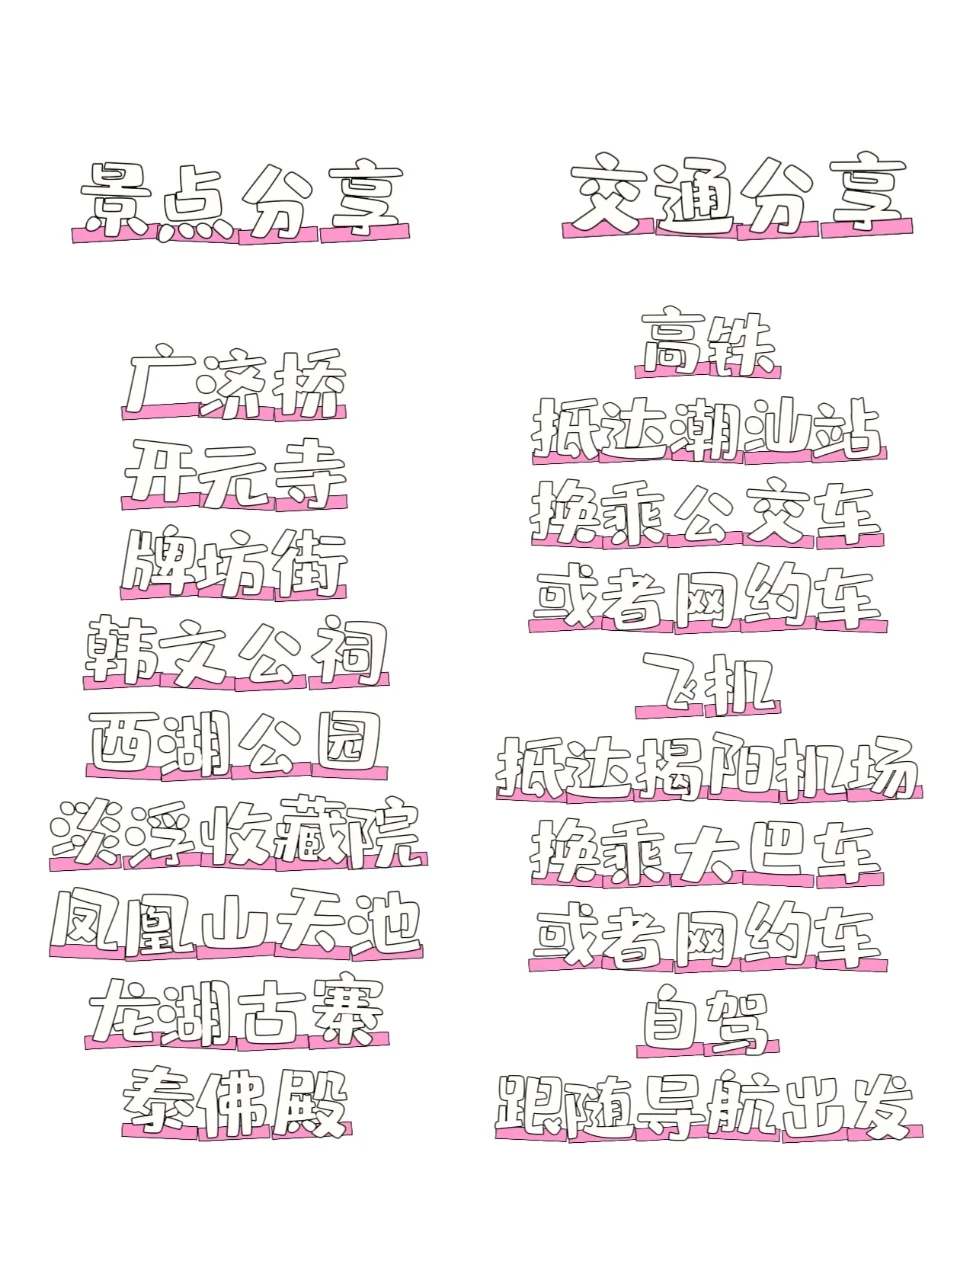 景点分享
广济桥
开元寺
牌坊街
韩文公祠
西湖公园
淡浮收藏院
凤凰山天池
龙湖古寨
泰佛殿
交通分享
高铁
抵达潮汕站
换乘公交车
或者网约车
飞机
抵达揭阳机场
换乘大巴车
或者网约车
自驾
跟随导航出发